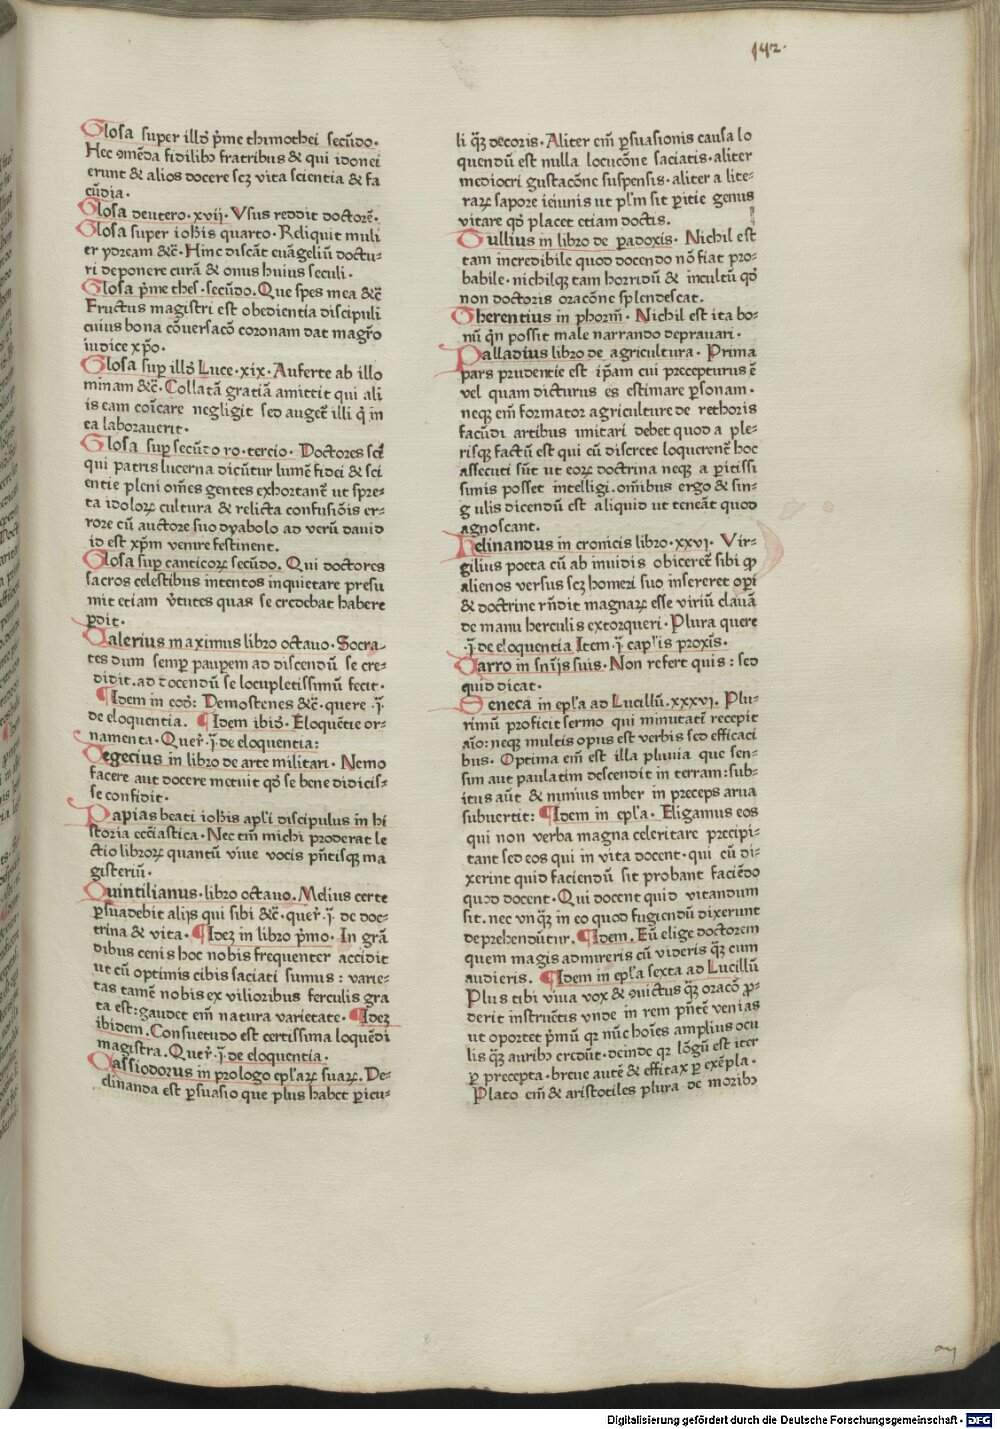 142.
Glosa super illo p̄me thimothei secūdo.
Hec ɔmēda fidilibꝰ fratribus & qui idonei
erunt & alios docere scꝫ vita scientia & fa
cūdia.
Glosa deutero. xvij. Vsus reddit doctorē.
Glosa super iohīs quarto. Reliquit muli
er ydream &c̄. Hinc discāt euāgeliū doctu⸗
ri deponere curā & onus huius seculi.
Glosa p̄me thes. secūdo. Que spes mea &c̄
Fructus magistri est obedientia discipuli
cuius bona cōuersacō coronam dat magr̄o
iudice xp̄o.
Glosa suꝑ illo Luce. xix. Auferte ab illo
minam &c̄. Collatā gratiā amittit qui ali
is eam cōicare negligit sed auget̄ illi q̄ in
ea laborauerit.
Glosa suꝑ secūdo ro. tercio. Doctores sc̄i
qui patris lucerna dicūtur lumē fidei & sci
entie pleni om̄es gentes exhortant̄ ut spre⸗
ta idoloꝝ cultura & relicta confusiōis er⸗
rore cū auctore suo dyabolo ad verū dauid
id est xp̄m venire festinent.
Glosa suꝑ canticoꝝ secūdo. Qui doctores
sacros celestibus intentos inquietare presu
mit etiam v̄tutes quas se credebat habere
ꝑdit.
Valerius maximus libro octauo. Socra⸗
tes dum semꝑ pauꝑem ad discendū se cre⸗
didit. ad docendū se locupletissimū fecit.
¶Idem in eodē: Demostenes &c̄. quere .j̄.
de eloquentia. ¶Idem ibidē. Eloquētie or⸗
namenta. Quer̄ .j̄. de eloquentia:
Vegecius in libro de arte militari. Nemo
facere aut docere metuit qd̄ se bene didicis⸗
se confidit.
Papias beati iohīs apl̄i discipulus in hi
storia ecc̄iastica. Nec em̄ michi proderat le
ctio libroꝝ quantū viue vocis p̄ntisqꝫ ma
gisteriū.
Quintilianus. libro octauo. Melius certe
ꝑsuadebit alijs qui sibi &c̄. quer̄ .j̄. de doc⸗
trina & vita. ¶Idēꝫ in libro p̄mo. In grā
dibus cenis hoc nobis frequenter accidit
ut cū optimis cibis saciati sumus: varie⸗
tas tamē nobis ex vilioribus ferculis gra
ta est: gaudet em̄ natura varietate. ¶Idēꝫ
ibidem. Consuetudo est certissima loquēdi
magistra. Quer̄ .j̄. de eloquentia.
Cassiodorus in prologo epl̄aꝝ suaꝝ. De⸗
clinanda est ꝑsuasio que plus habet ꝑicu⸗
li qꝫ̄ decoris. Aliter em̄ ꝑsuasionis causa lo
quendū est nulla locucōne saciatis. aliter
mediocri gustacōne suspensis. aliter a lite⸗
raꝝ sapore ieiunis ut pl̄m sit ꝑitie genus
vitare qd̄ placet etiam doctis.
Tullius in libro de ꝑadoxis. Nichil est
tam incredibile quod docendo nō fiat pro⸗
babile. nichilqꝫ tam horridū & incultū qd̄
non doctoris oracōne splendescat.
Therentius in phorm̄. Nichil est ita bo⸗
nū q̄n possit male narrando deprauari.
Palladius libro de agricultura. Prima
pars prudentie est ip̄am cui precepturus ē
vel quam dicturus es estimare ꝑsonam.
neqꝫ em̄ formator agriculture de rethoris
facūdi artibus imitari debet quod a ple⸗
risqꝫ factū est qui cū discrete loquerent̄ hoc
assecuti sūt ut eoꝝ doctrina neqꝫ a ꝑitissi
simis posset intelligi. om̄ibus ergo & sin⸗
gulis dicendū est aliquid ut teneāt quod
agnoscant.
Helinandus in cronicis libro. xxvj. Vir⸗
gilius poeta cū ab inuidis obiceret̄ sibi ꝙ
alienos versus scꝫ homeri suo insereret oꝑi
& doctrine rn̄dit magnaꝝ esse viriū clauā
de manu herculis extorqueri. Plura quere
.j̄. de eloquentia Item .j̄. capl̄is proxīs.
Varro in sn̄ijs suis. Non refert quis: sed
quid dicat.
Seneca in epl̄a ad Lucillū. xxxvj. Plu⸗
rimū proficit sermo qui minutatī recepit
aīo: neqꝫ multis opus est verbis sed efficaci
bus. Optima em̄ est illa pluuia que sen⸗
sim aut paulatim descendit in terram: sub⸗
itus aūt & nimius imber in preceps arua
subuertit: ¶Idem in epl̄a. Eligamus eos
qui non verba magna celeritare precipi⸗
tant sed eos qui in vita docent. qui cū di⸗
xerint quid faciendū sit probant faciēdo
quod docent. Qui docent quid vitandum
sit. nec vnqꝫ̄ in eo quod fugiendū dixerunt
deprehendūtur. ¶Idem. Eū elige doctorem
quem magis admireris cū videris qꝫ̄ cum
audieris. ¶Idem in epl̄a sexta ad Lucillū
Plus tibi viua vox & ɔuictus qꝫ̄ oracō ꝓ⸗
derit instruētis vnde in rem p̄ntē venias
ut oportet p̄mū qꝛ nūc hoīes amplius ocu
lis qꝫ̄ auribꝰ credūt. deinde qꝛ lōgū est iter
ꝑ precepta. breue autē & efficax ꝑ exēpla.
Plato em̄ & aristotiles plura de moribꝰ
Digitalisierung gefördert durch die Deutsche Forschungsgemeinschaft - DFG